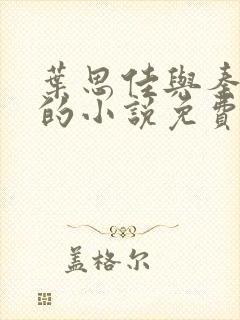 葉思佳與秦
的小說免費
盖格尔